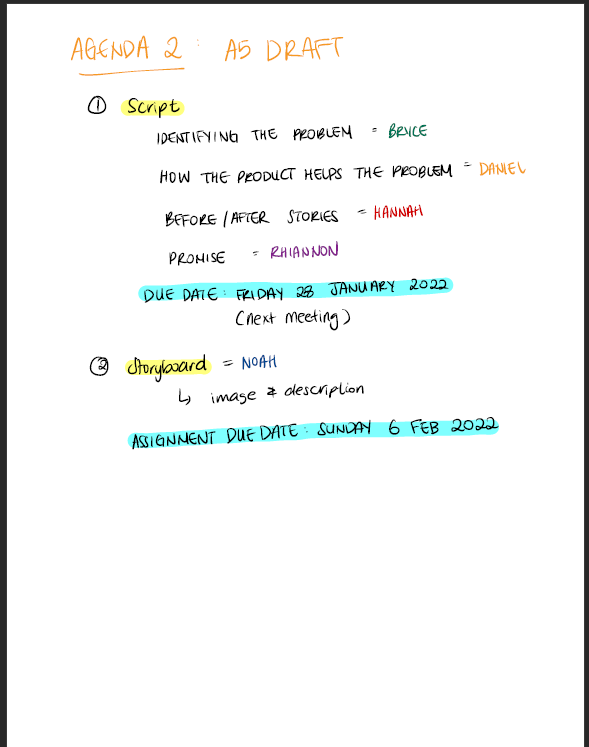 AGENDA 2 : A5 DRAFT
① Script
IDENTIFYING THE PROBLEM = BRYCE
HOW THE PRODUCT HELPS THE PROBLEM = DANIEL
BEFORE / AFTER STORIES = HANNAH
PROMISE = RHIANNON
DUE DATE : FRIDAY 28 JANUARY 2022
(next meeting)
② Storyboard = NOAH
↳ image & description
ASSIGNMENT DUE DATE : SUNDAY 6 FEB 2022